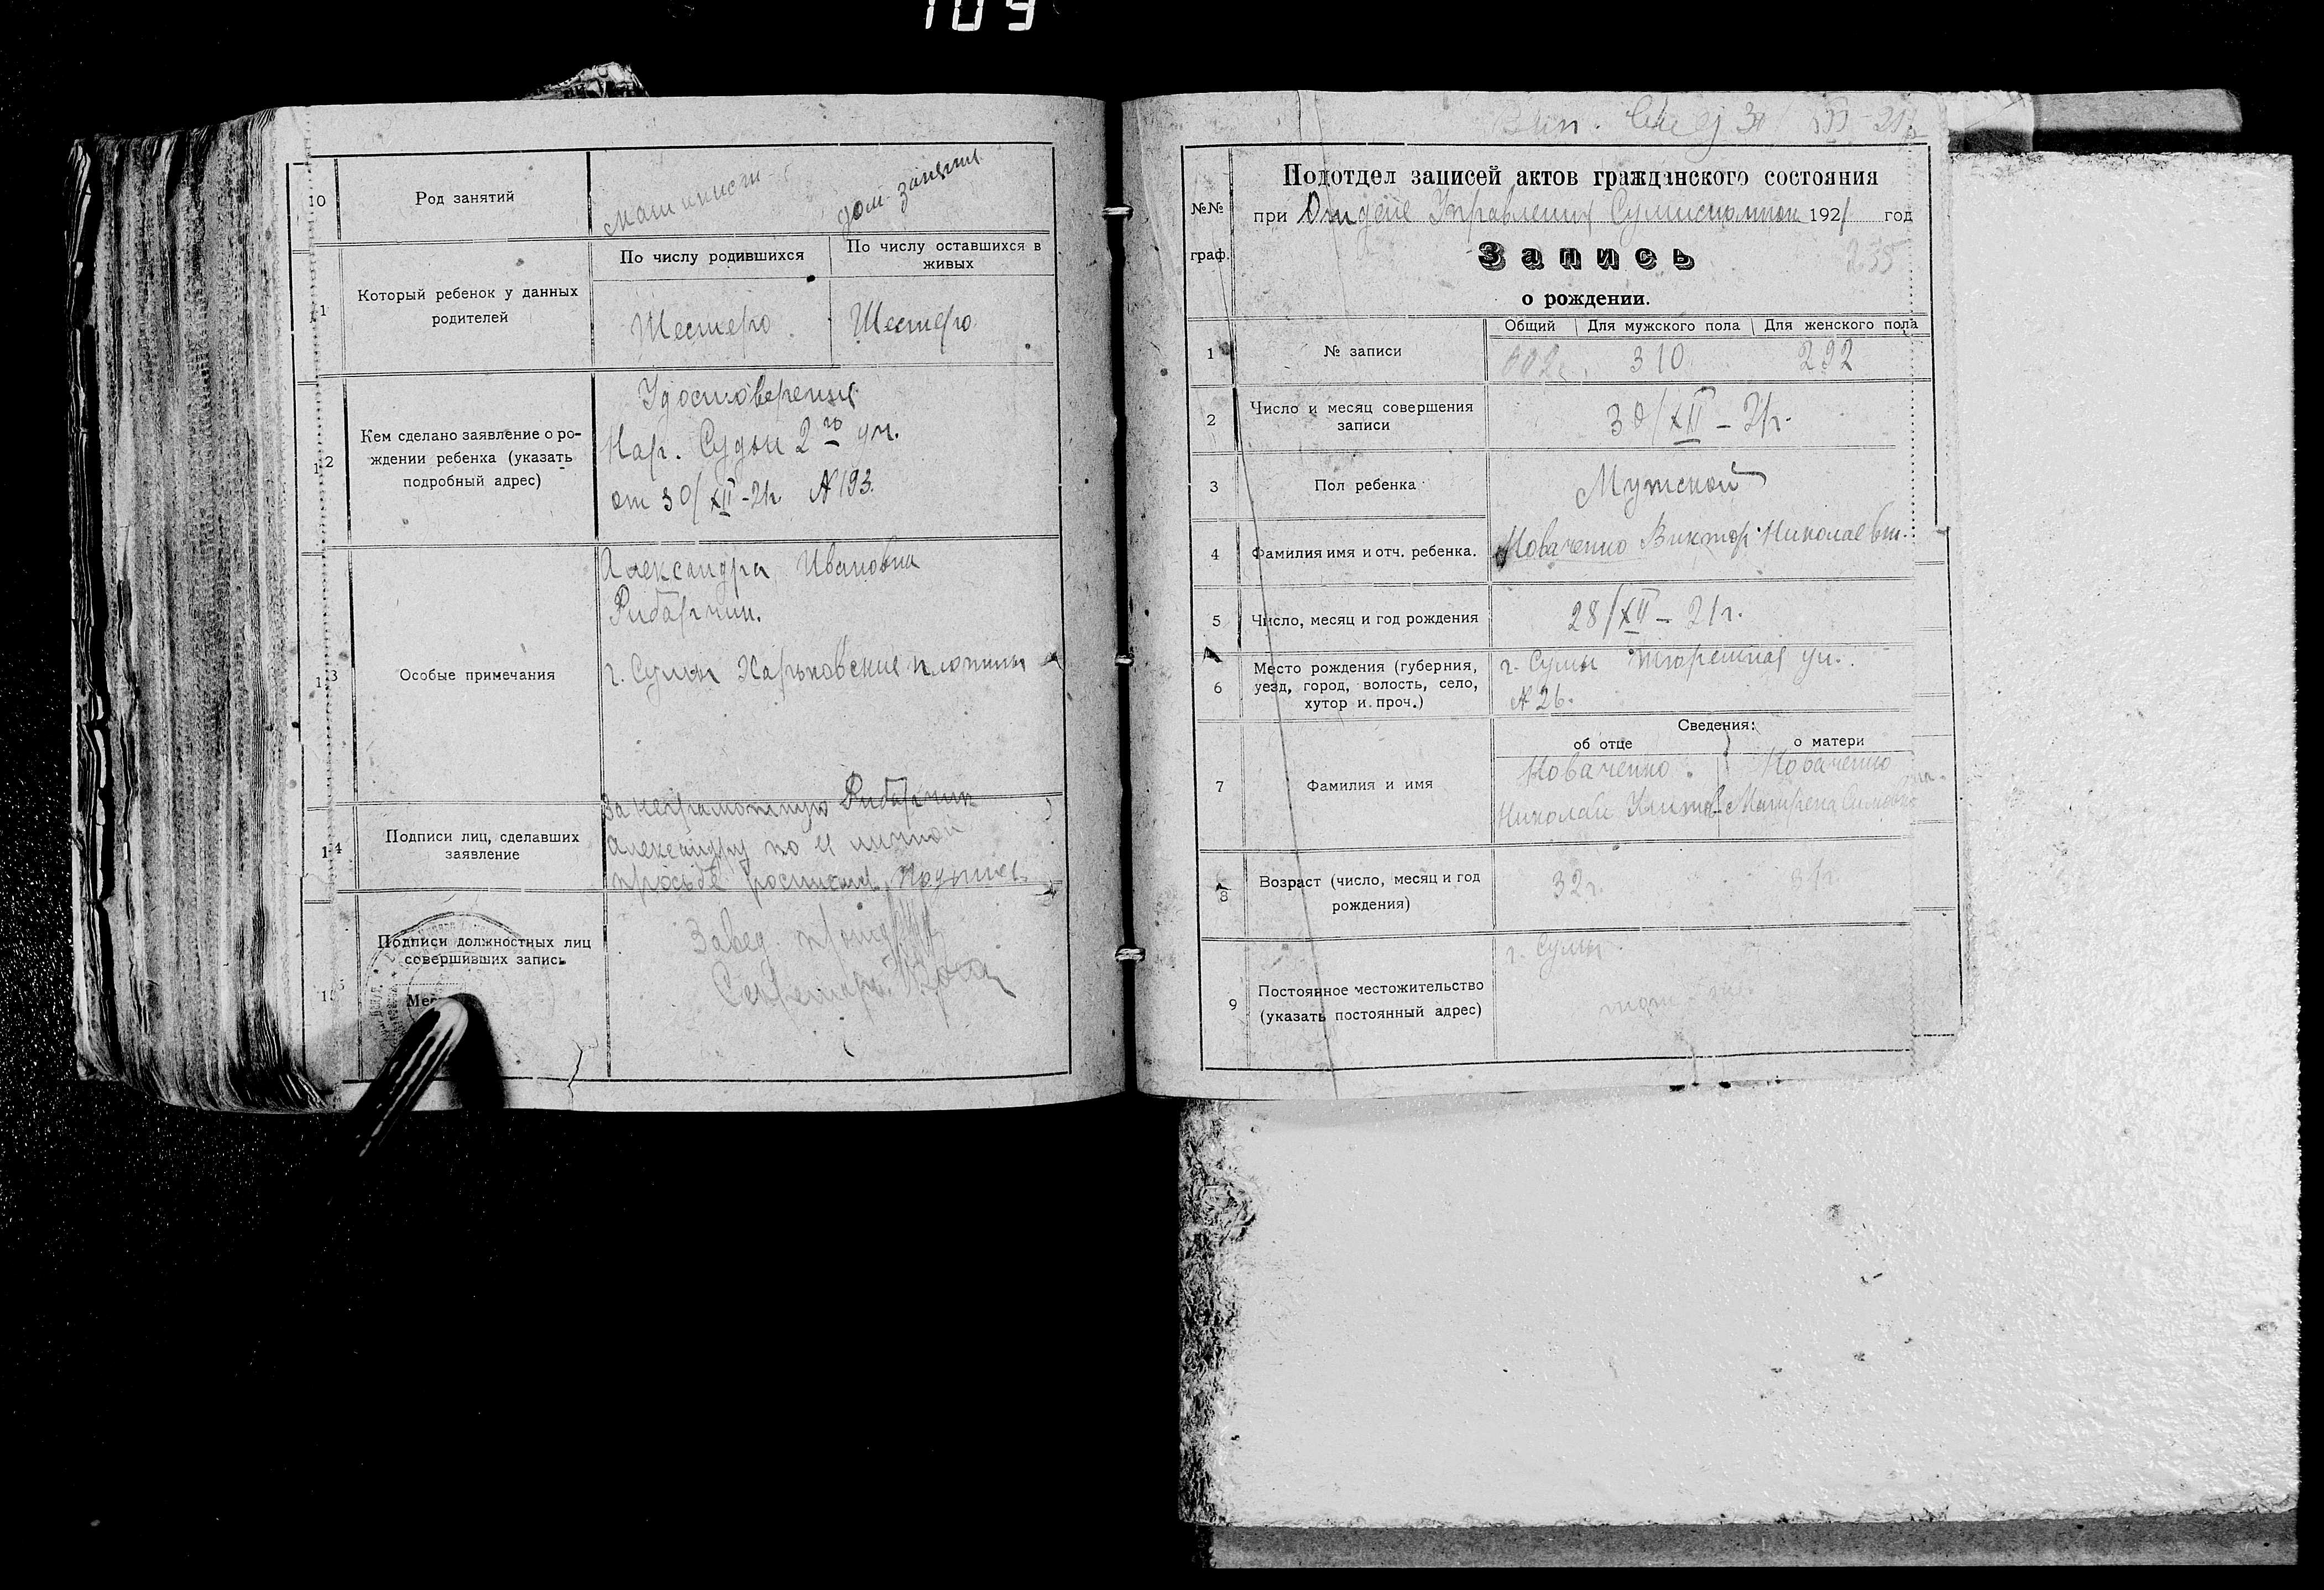 109
10
Род занятий
Машинист
дом. занятия
11
Который ребенок у данных
родителей
По числу родившихся
По числу оставшихся в
живых
Шестеро.
Шестеро
12
Кем сделано заявление о ро-
ждении ребенка (указать
подробный адрес)
Удостоверения
Нар. Судьи 2го уч.
от 30/XII-21г №193.
13
Особые примечания
Александра Ивановна
г. Сумы Харьковские
14
Подписи лиц, сделавших
заявление
За неграмотную
Александру по её личной
просьбе
15
Подписи должностных лиц
совершивших запись
Завед
Секретарь
30 XII-21г
№№
граф.
Подотдел записей актов гражданского состояния
при Отделе Управления Сумисполкома 1921 год
Запись
235
о рождении.
1
№ записи
Общий
Для мужского пола
Для женского пола
602
310
292
2
Число и месяц совершения
записи
30/XII-21г.
3
Пол ребенка
Мужской
4
Фамилия имя и отч. ребенка.
Коваченко Виктор Николаевич.
5
Число, месяц и год рождения
28/XII-21г.
6
Место рождения (губерния,
уезд, город, волость, село,
хутор и проч.)
г. Сумы ул.
№ 26.
7
Фамилия и имя
Сведения:
об отце
о матери
Коваченко.
Коваченко
Николай
8
Возраст (число, месяц и год
рождения)
32г.
31г
9
Постоянное местожительство
(указать постоянный адрес)
г. Сумы